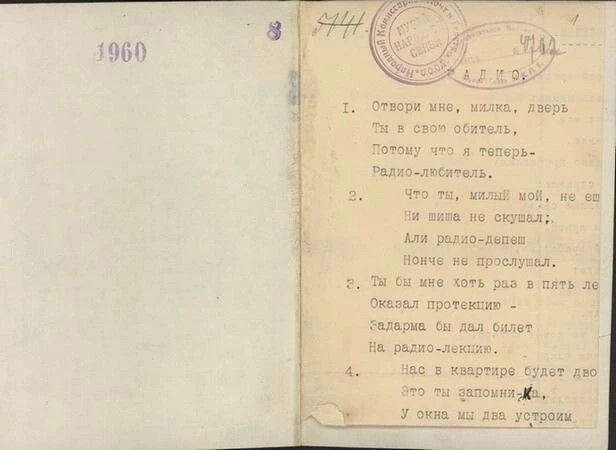 1960
8
5141.
1
Народный Комиссариат Почт и
МУЗЕЙ
НАРОДНОЙ
СВЯЗИ
4702
АДИО.
I. Отвори мне, милка, дверь
Ты в свою обитель,
Потому что я теперь-
Радио-любитель.
2. Что ты, милый мой, не еш
Ни шиша не скушал;
Али радио-депеш
Нонче не прослушал.
3. Ты бы мне хоть раз в пять ле
Оказал протекцию -
Задарма бы дал билет
На радио-лекцию.
4. Нас в квартире будет дво
Это ты запомни-ка,
У окна мы два устроим